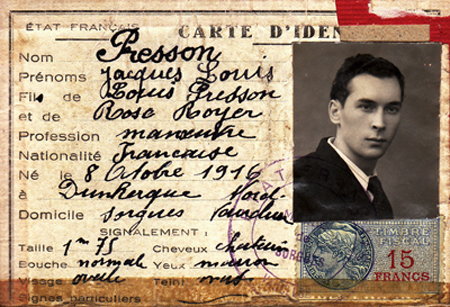 ÉTAT FRANÇAIS
CARTE D'IDEN
Nom Presson
Prénoms Jacques Louis
Fils de Louis Presson
et de Rose Royer
Profession manœuvre
Nationalité Française
Né le 8 Octobre 1916
à Dunkerque Nord
Domicile Sorgues Vaucluse
SIGNALEMENT :
Taille 1m75 Cheveux chatain
Bouche normal Yeux marron
Visage ovale Teint
Signes particuliers
TIMBRE
FISCAL
15
FRANCS